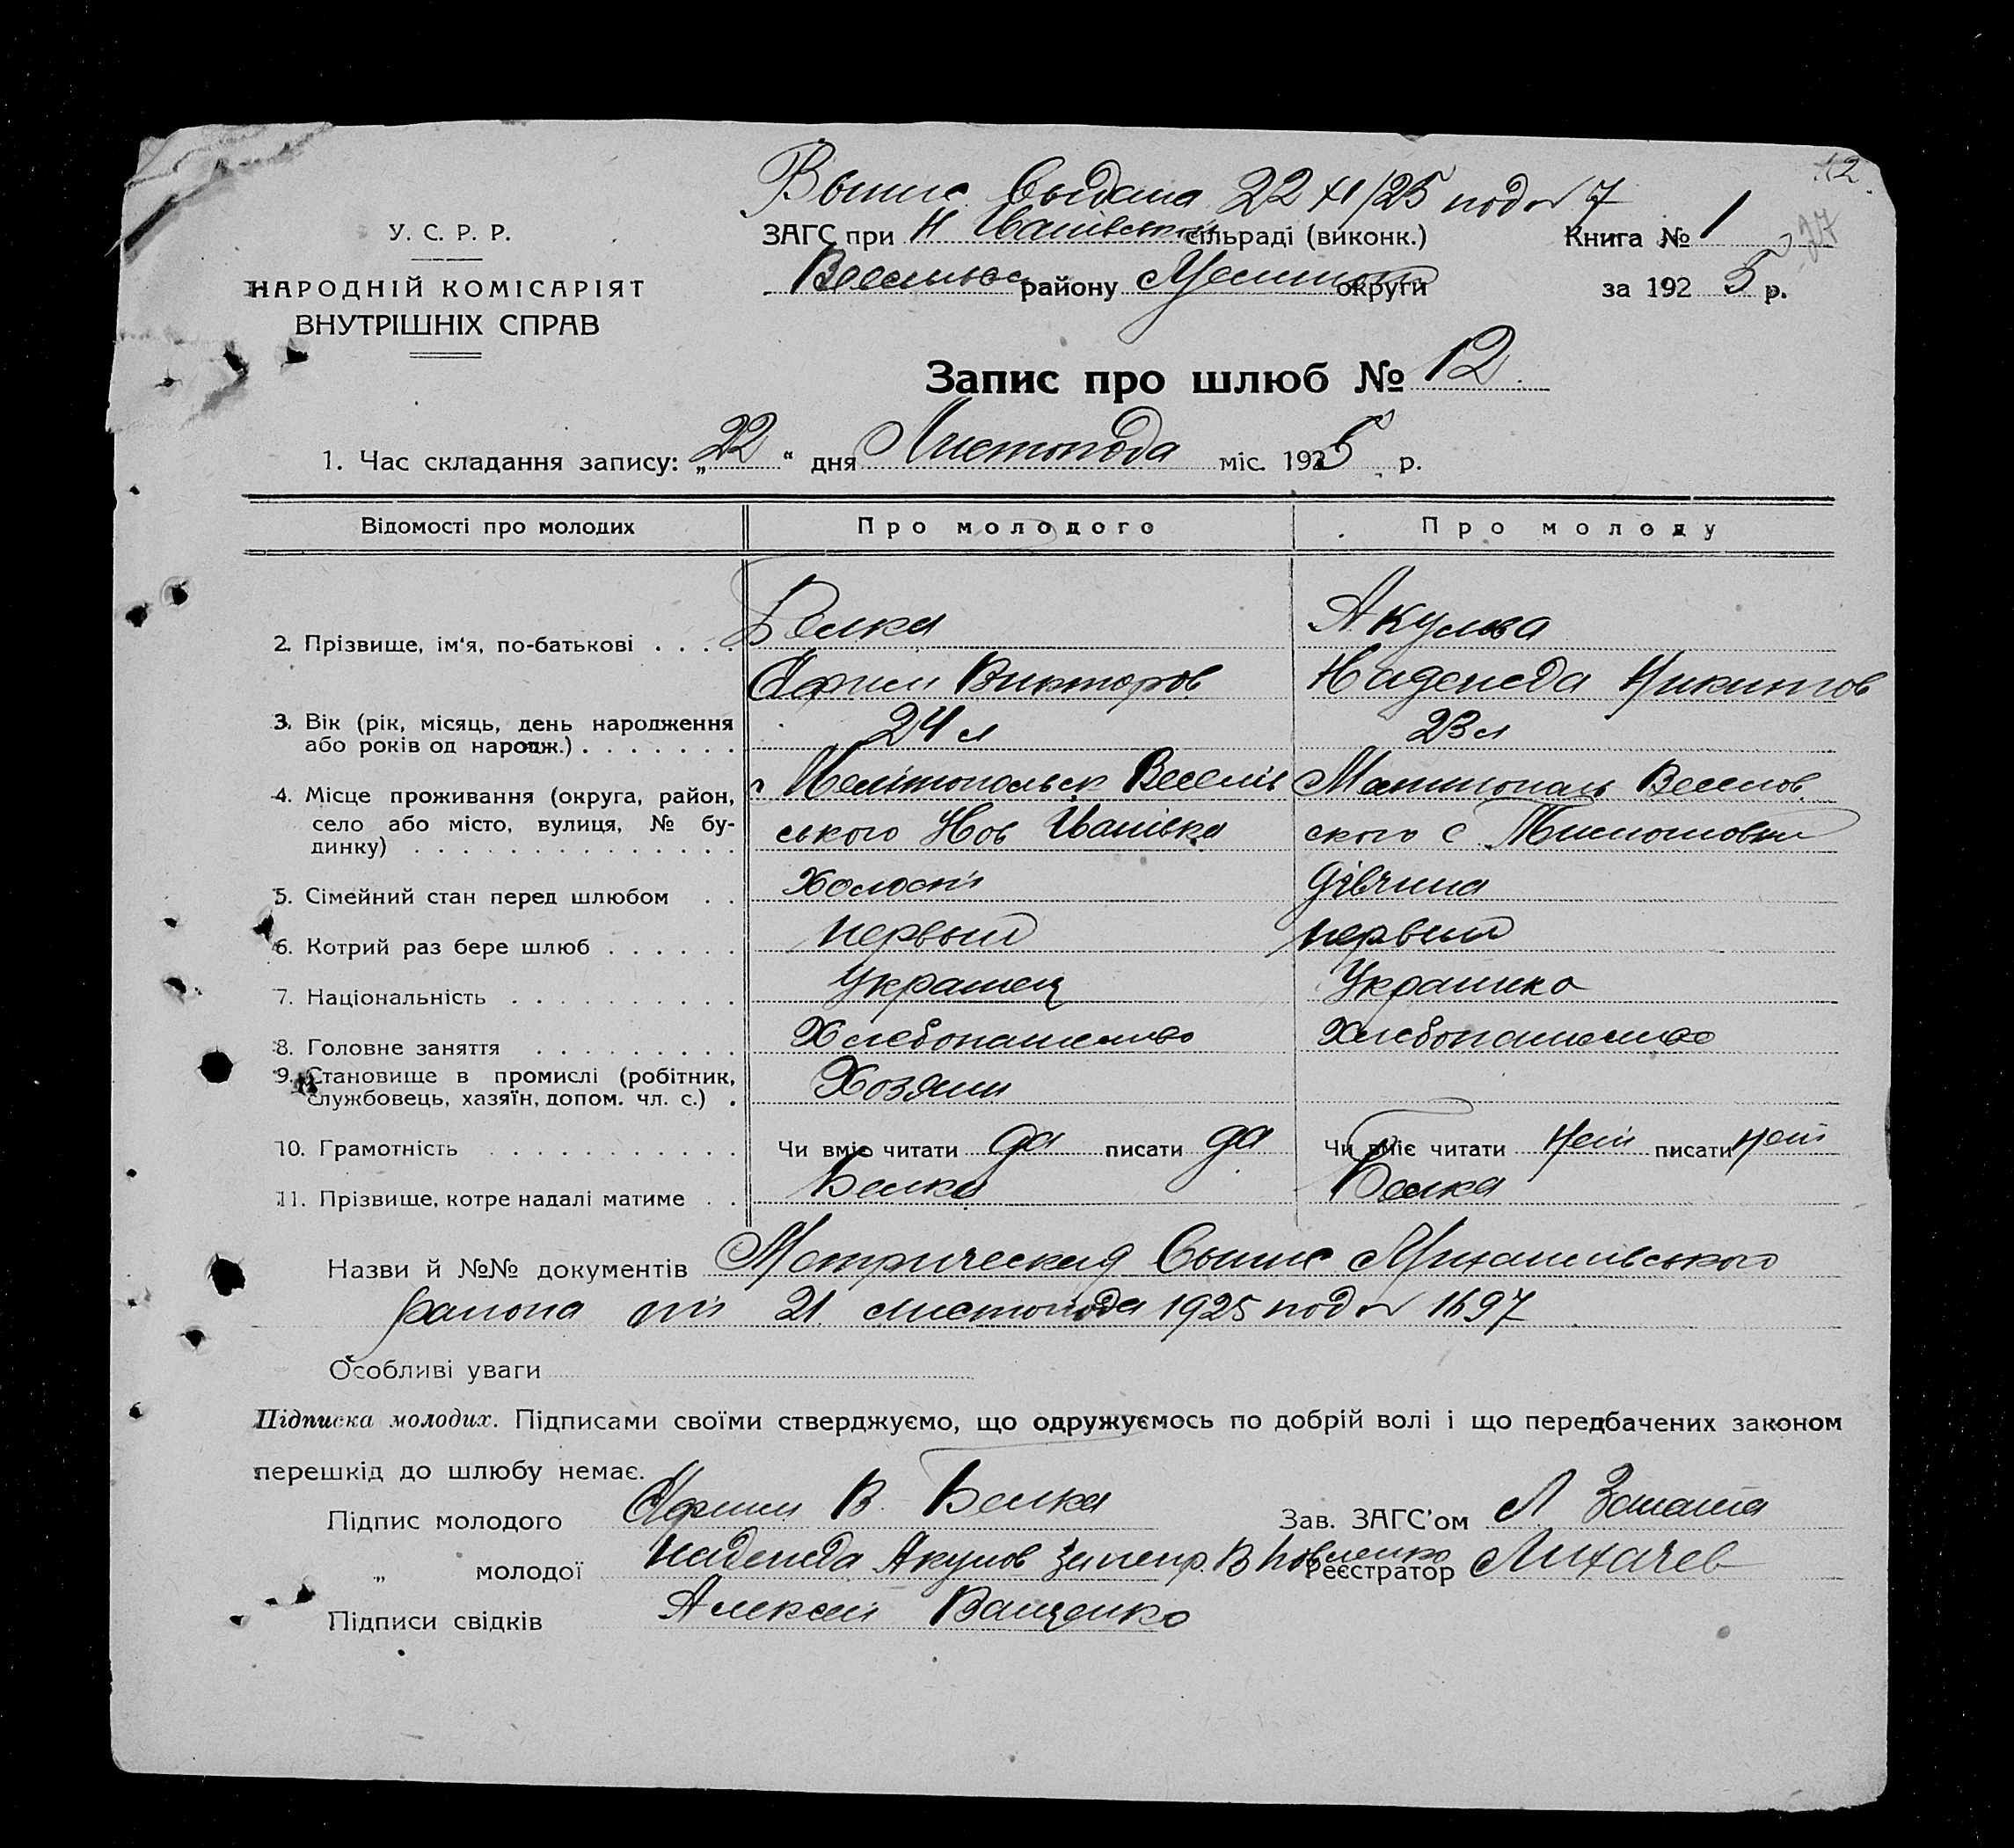 12
Выпис выдана 22 XI/25 под № 7
У. С. Р. Р.
ЗАГС при Н Іванівской сільраді (виконк.) Книга № 1
27
НАРОДНІЙ КОМІСАРІЯТ
ВНУТРІШНІХ СПРАВ
району округи за 192 5 р.
Запис про шлюб № 12
1. Час складання запису: „22“ дня Листопода міс. 1925 р.
Відомості про молодих Про молодого Про молоду
2. Прізвище, ім'я, по-батькові . . . . Белка Акулова
Ефим Викторов Надежда Никитов
3. Вік (рік, місяць, день народження
або років од народж.) . . . . . . . 24 л 23 л
4. Місце проживання (округа, район, Мелітопольск Веселів Веселов
село або місто, вулиця, № бу- ського Нов Іванівка ского с
динку) . . . . . . . . . . . . . .
5. Сімейний стан перед шлюбом . . Холостій дівчина
6. Котрий раз бере шлюб . . . . . . первый первый
7. Національність . . . . . . . . . . Украинец Украинка
8. Головне заняття . . . . . . . . . Хлебопашество Хлебопашество
9. Становище в промислі (робітник,
службовець, хазяїн, допом. чл. с.) . Хозяин
10. Грамотність . . . . . . . . . . . Чи вміє читати да писати да Чи вміє читати нет писати нет
11. Прізвище, котре надалі матиме . . Белка Белка
Назви й №№ документів Метрическая выпис Михайлівського
района від 21 листопода 1925 под № 1697
Особливі уваги
Підписка молодих. Підписами своїми стверджуємо, що одружуємось по добрій волі і що передбачених законом
перешкід до шлюбу немає.
Підпис молодого Ефим В. Белка Зав. ЗАГС'ом Л
„ молодої Надежда Акулов Реєстратор Лихачев
Підписи свідків Алексей Ващенко